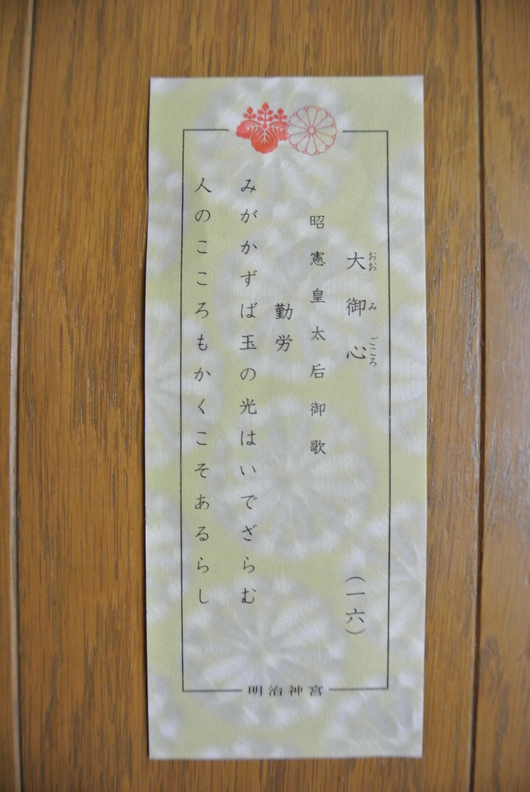 大御心
おおみごころ
（一六）
昭憲皇太后御歌
勤労
みがかずば玉の光はいでざらむ
人のこころもかくこそあるらし
明治神宮